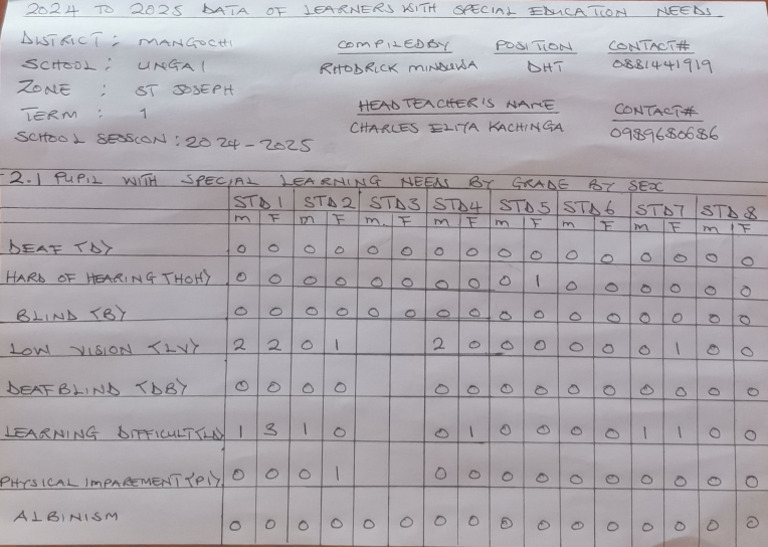 2024 TO 2025 DATA OF LEARNERS WITH SPECIAL EDUCATION NEEDS
DISTRICT : MANGOCHI COMPILED BY POSITION CONTACT#
SCHOOL : UNGAI RHODRICK MINDUWA DHT 0881441919
ZONE : ST JOSEPH HEADTEACHER'S NAME CONTACT#
TERM : 1 CHARLES ELIYA KACHINGA 0989680686
SCHOOL SESSION : 2024-2025
2.1 PUPIL WITH SPECIAL LEARNING NEEDS BY GRADE BY SEX
STD 1 STD 2 STD 3 STD 4 STD 5 STD 6 STD 7 STD 8
M F M F M. F M F M F M F M F M F
DEAF (D) 0 0 0 0 0 0 0 0 0 0 0 0 0 0 0 0
HARD OF HEARING (HOH) 0 0 0 0 0 0 0 0 0 1 0 0 0 0 0 0
BLIND (B) 0 0 0 0 0 0 0 0 0 0 0 0 0 0 0 0
LOW VISION (LV) 2 2 0 1 2 0 0 0 0 0 0 1 0 0
DEAFBLIND (DB) 0 0 0 0 0 0 0 0 0 0 0 0 0 0
LEARNING DIFFICULT(LD) 1 3 1 0 0 1 0 0 0 0 1 1 0 0
PHYSICAL IMPAREMENT (PI) 0 0 0 1 0 0 0 0 0 0 0 0 0 0
ALBINISM 0 0 0 0 0 0 0 0 0 0 0 0 0 0 0 0